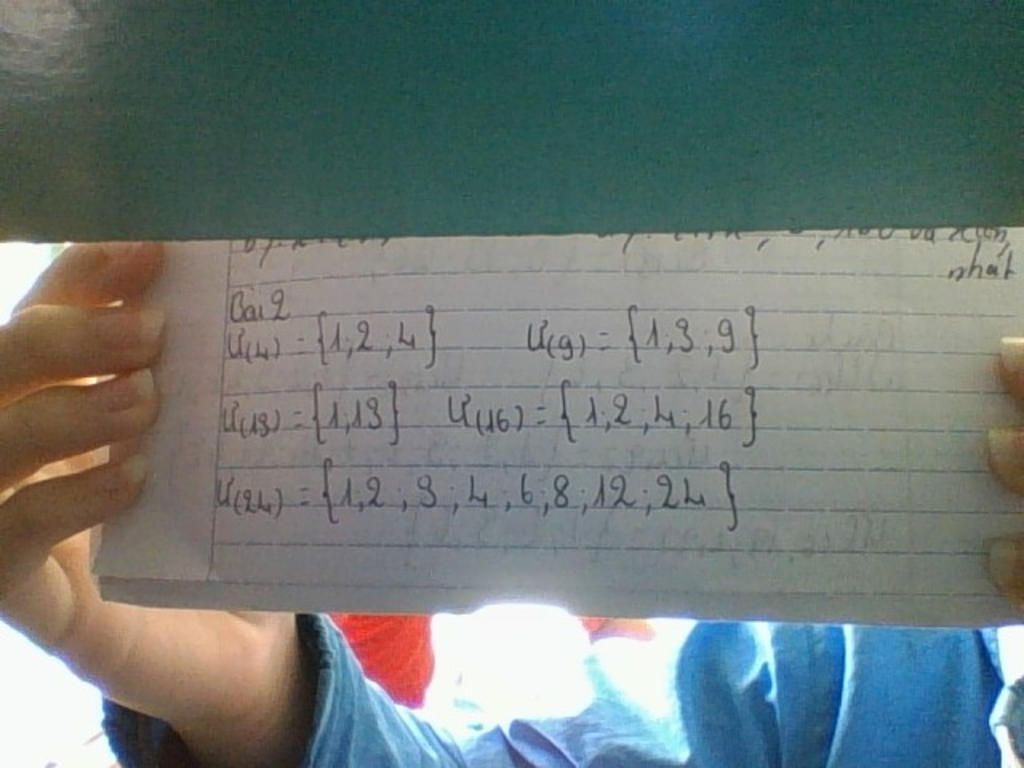 nhất
Bài 2
Ư(4) = {1,2;4} Ư(9) = {1,3;9}
Ư(13) = {1,13} Ư(16) = {1,2;4;16}
Ư(24) = {1,2;3;4;6;8;12;24}